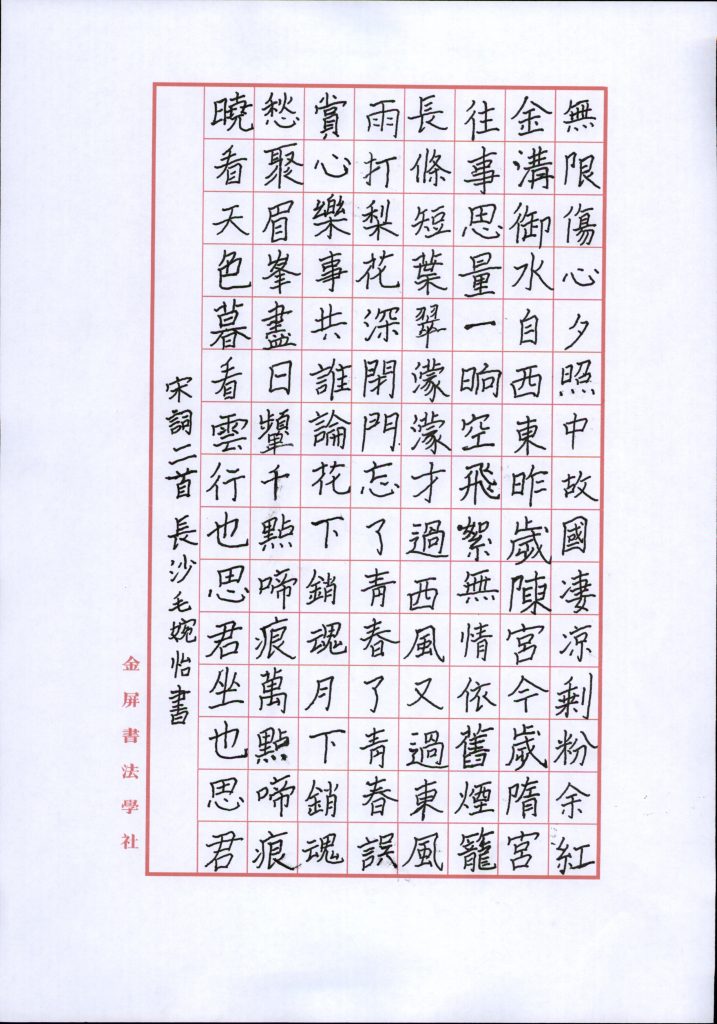 無限傷心夕照中故國凄凉剩粉余紅
金溝御水自西東昨歲陳宮今歲隋宮
往事思量一晌空飛絮無情依舊煙籠
長條短葉翠濛濛才過西風又過東風
雨打梨花深閉門忘了青春了青春誤
賞心樂事共誰論花下銷魂月下銷魂
愁聚眉峯盡日顰千點啼痕萬點啼痕
曉看天色暮看雲行也思君坐也思君
宋詞二首 長沙毛婉怡書
金屏書法學社